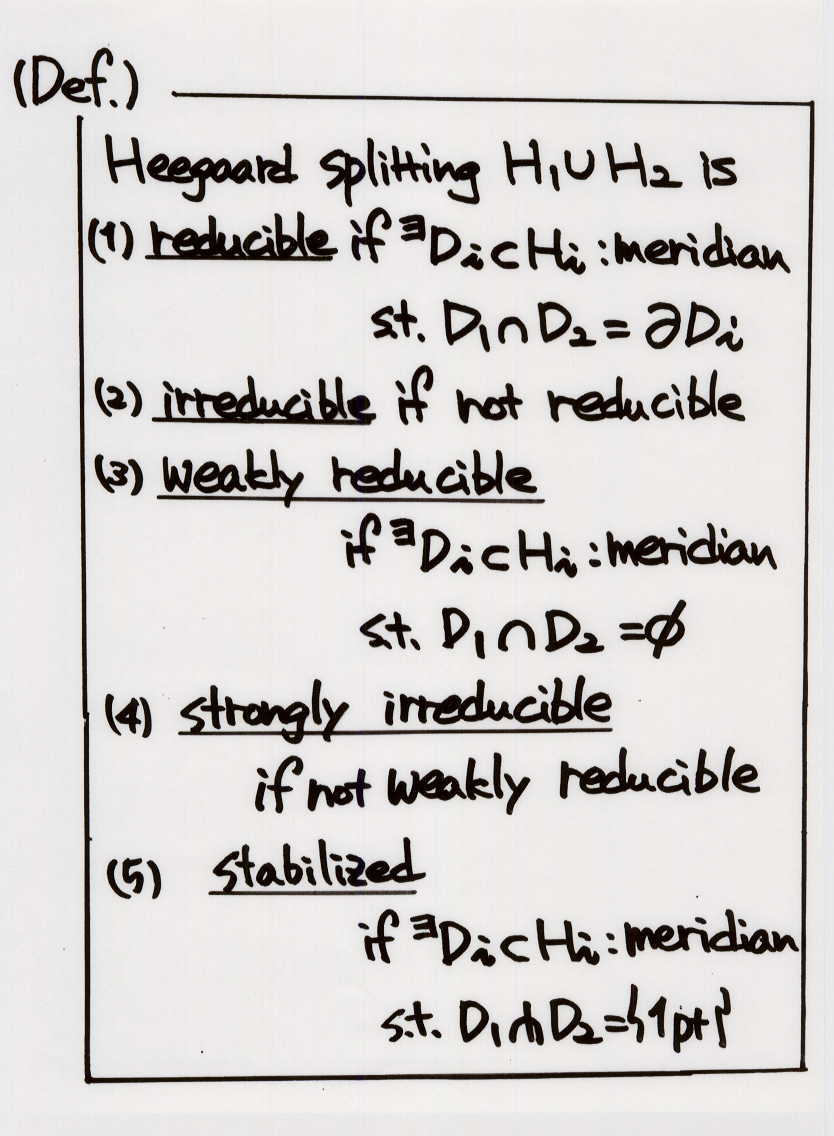 (Def.)
Heegaard splitting H₁∪H₂ is
(1) reducible if ∃Dᵢ⊂Hᵢ : meridian
s.t. D₁∩D₂ = ∂Dᵢ
(2) irreducible if not reducible
(3) weakly reducible
if ∃Dᵢ⊂Hᵢ : meridian
s.t. D₁∩D₂ = ∅
(4) strongly irreducible
if not weakly reducible
(5) stabilized
if ∃Dᵢ⊂Hᵢ : meridian
s.t. D₁⋔D₂ = {1pt}